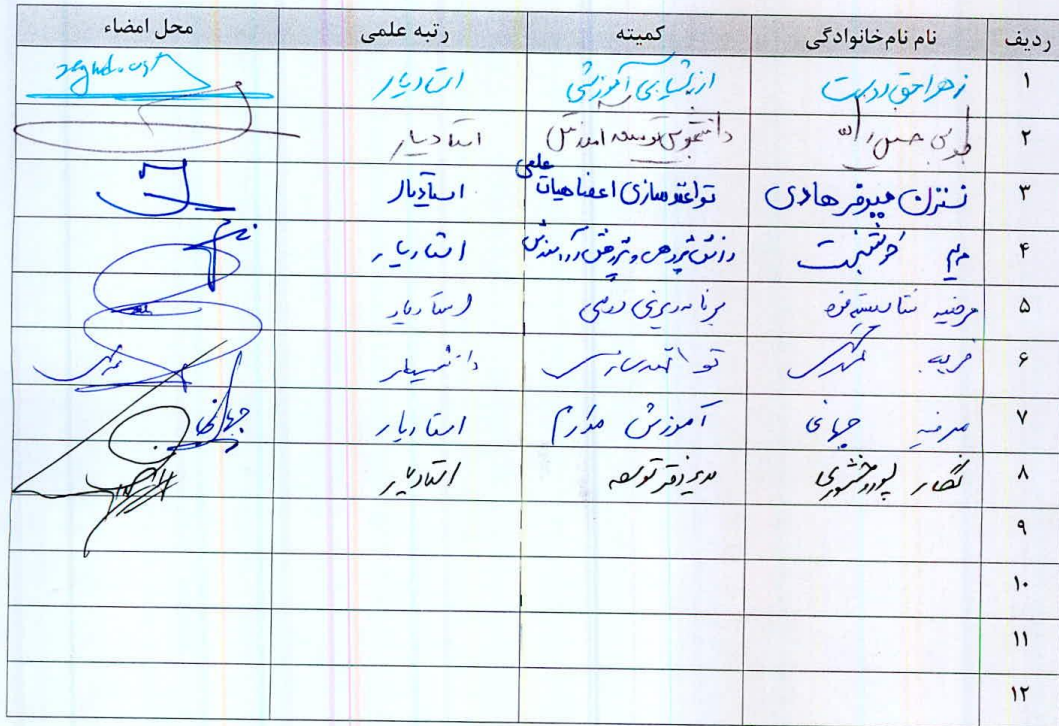 ردیف نام نام‌خانوادگی کمیته رتبه علمی محل امضاء
۱ زهرا حق دوست ارزشیابی آموزشی استادیار zaghdoost
۲ طوبی دانشجویی توسعه آموزش استادیار
۳ نسترن میرفرهادی توانمندسازی اعضا هیات علمی استادیار
۴ مریم دانش پژوهی و پژوهش در آموزش استادیار
۵ مرضیه برنامه ریزی درسی استادیار
۶ فریبا عسگری توانمندسازی دانشیار
۷ مرضیه جهانی آموزش مداوم استادیار جهانی
۸ نگار پوروخشوری مدیر دفتر توسعه استادیار
۹
۱۰
۱۱
۱۲